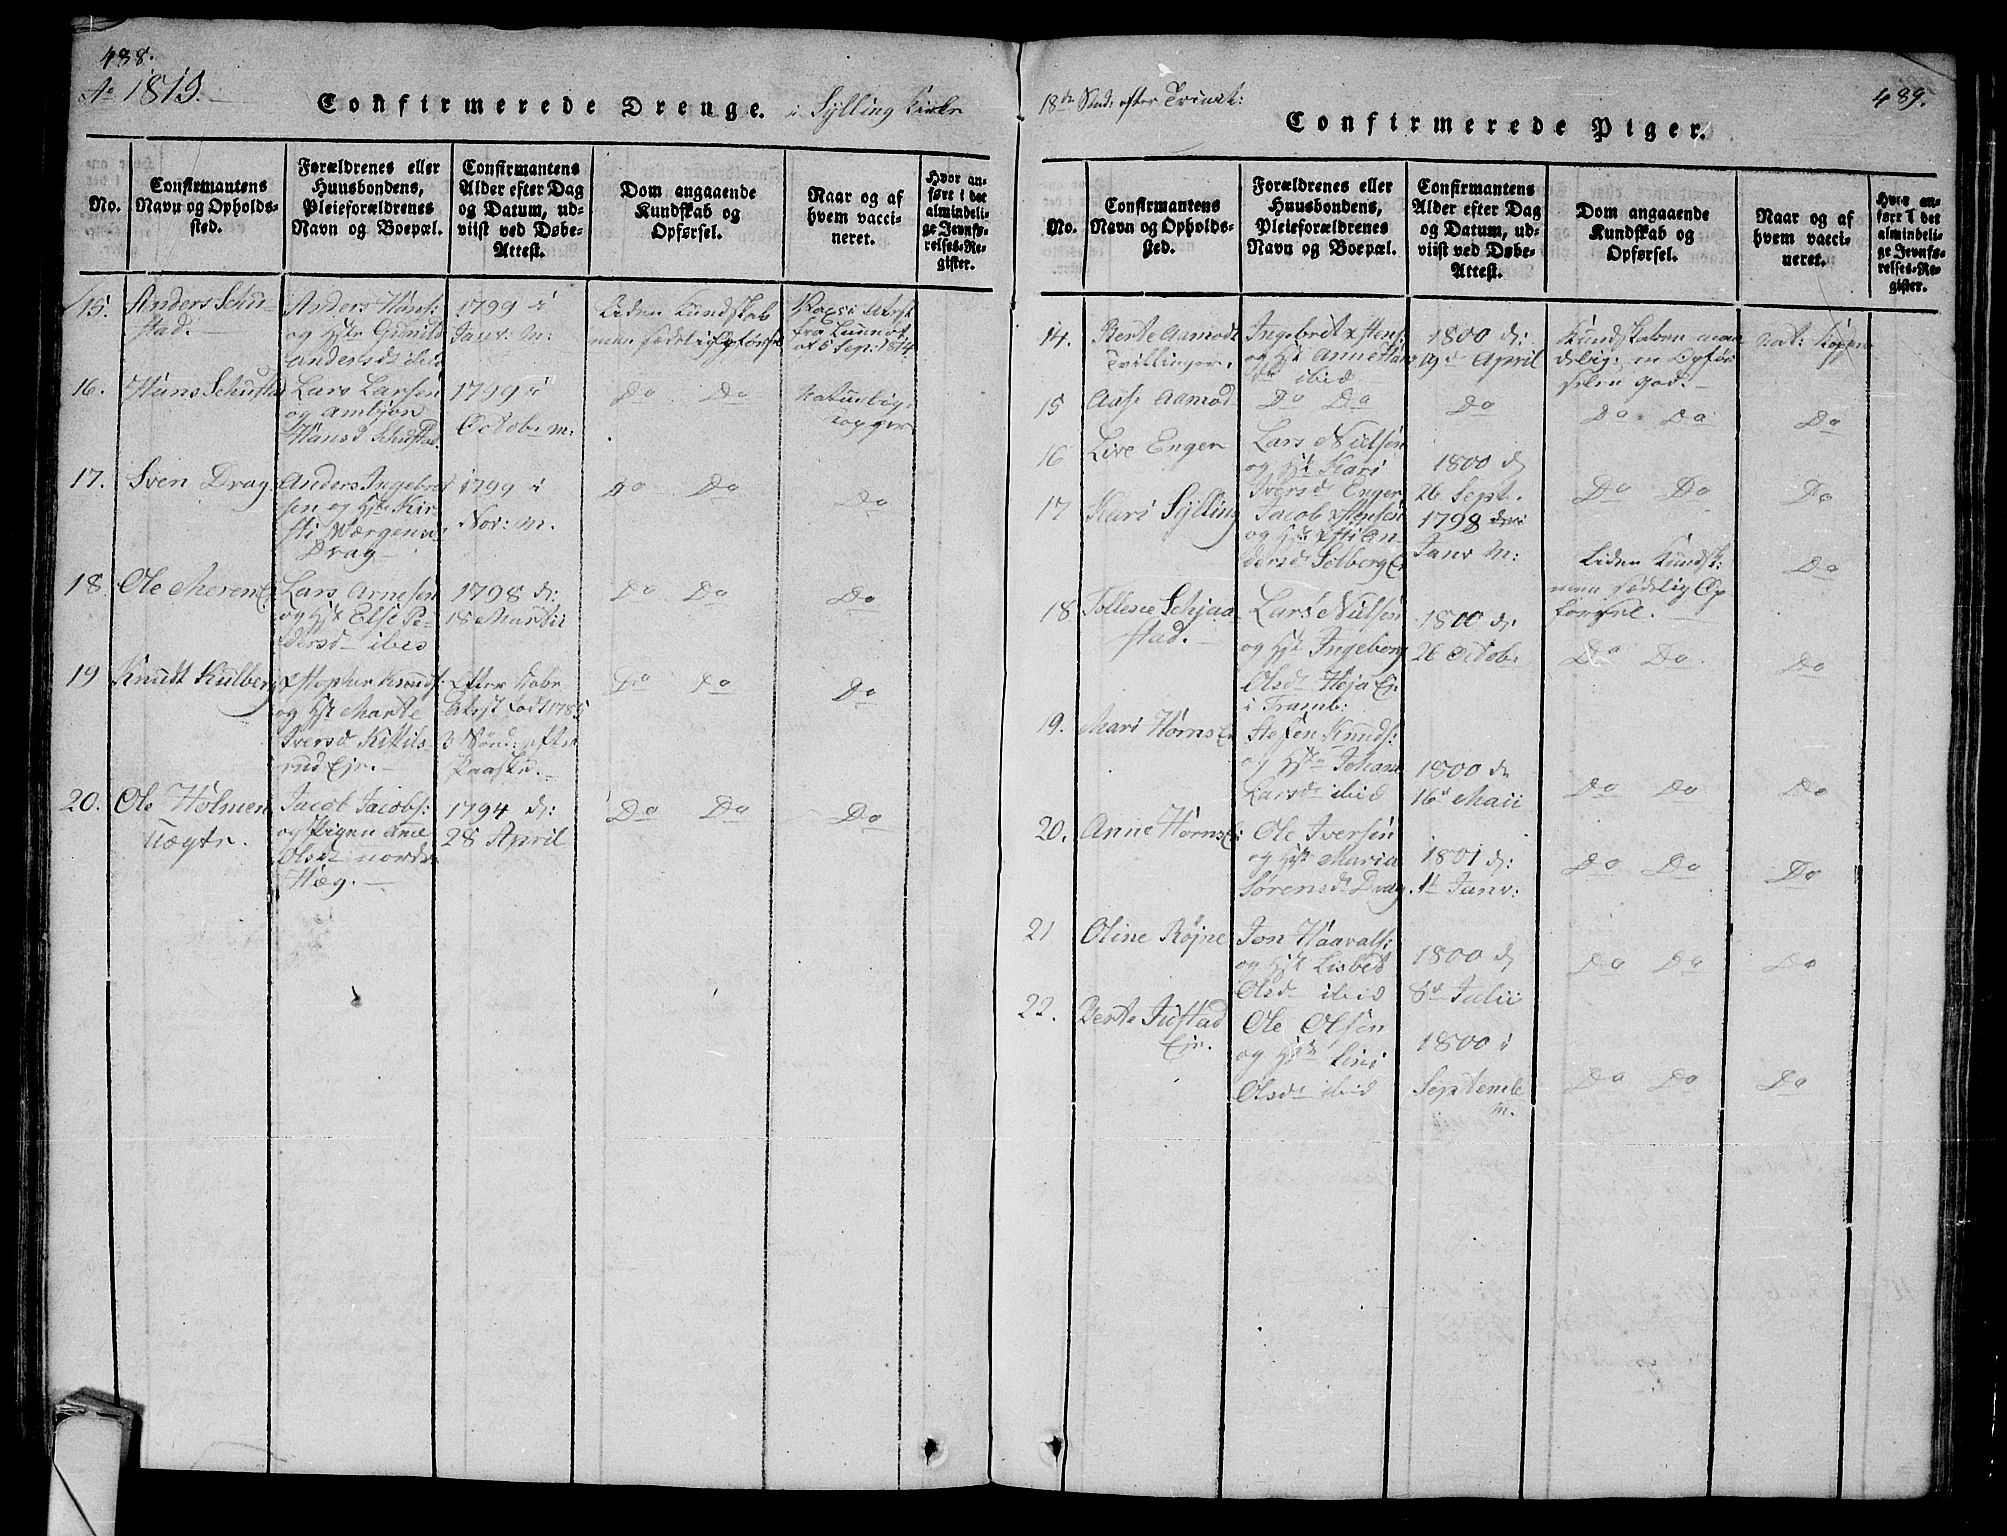 488.
Ao 1819.
Confirmerede Drenge. i Sylling Kirke
No.
Confirmantens Navn og Opholds-sted.
Forældrenes eller Huusbondens, Pleieforældrenes Navn og Boepæl.
Confirmantens Alder efter Dag og Datum, ud-viist ved Døbe-Attest.
Dom angaaende Kundskab og Opførsel.
Naar og af hvem vacci-neret.
Hvor an-ført i det almindeli-ge Jevnfø-relses-Re-gister.
15. Anders Schu-
stad.
Anders Hans:
og Hst Gunild
Andersdt ibid
1799 i
Janv: M:
Liden Kundskab
men sædelig Opførsel
fra
Sep: 1814
16. Hans Schustad
Lars Larsen
og Ambjør
Hansd Schustad
1799 i
Octob: m:
Do Do
Naturlig
Kopper
17. Sven Drag
Anders Ingebret
sen og Hst Kir-
sti
Drag
1799 i
Nov: M.
Do Do
Do
18. Ole Meren Ej.
Lars Arnesen
og Hst Else Pe-
dersd ibid
1798 d:
18 Martii
Do Do
Do
19 Knudt Kulberg
Xstopher Knuds:
og Hst Marte
Iversd Kittils-
rud Ejr.
Efter
født 1785
3 Sønd: efter
Paaske.
Do Do
Do
20. Ole Holmen
Jacob Jacobs:
og Pigen Ane
Olsdt nordr
Hæg.
1794 d:
28 April
Do Do
Do
18de Sønd: efter Trinit:
489.
Confirmerede Piger.
No.
Confirmantens Navn og Opholds-sted.
Forældrenes eller Huusbondens, Pleieforældrenes Navn og Boepæl.
Confirmantens Alder efter Dag og Datum, ud-viist ved Døbe-Attest.
Dom angaaende Kundskab og Opførsel.
Naar og af hvem vacci-neret.
Hvor an-ført i det almindeli-ge Jevnfø-relses-Re-gister.
14. Berte Aamodt
Tvillinger.
Ingebret Xstens:
og Hst Anne Hans
dt ibid
1800 d:
19d April
Kundskaben maa
delig, en Opfør
selen god.
Nat: Kopper
15 Aase Aamod
Do Do
Do
Do Do
Do
16 Live Enger
Lars Nielsen
og Hst Kari
Iversd Enger
1800 d
26 Sept.
Do Do
Do
17 Kari Sylling
Jacob Xstensen
og Hst An-
dersd Solberg Ej
1798
Janv M:
Liden Kundsk:
men sædelig Op
førsel.
Do
18 Tollesie Schjaa
stad.
Lars Nielsen
og Hst Ingeborg
Olsd Heja Ej.
i Tranb:
1800 d:
26 Octob:
Do Do
Do
19. Mari Horns Ej
Stefen Knuds:
og Hst Johane
Larsd ibid
1800 d
16d Maii
Do Do
Do
20. Anne Horns Ej:
Ole Iversen
og Hst Maria
Sørensdt Drag
1801 d:
11 Janv:
Do Do
Do
21 Oline Røjne
Jon Haavals:
og Hst Lisbet
Olsd ibid
1800 d
8d Julii
Do Do
Do
22. Berte Justad
Ejr.
Ole Olsen
og Hst Live
Olsd ibid
1800 i
Septemb
m.
Do Do
Do